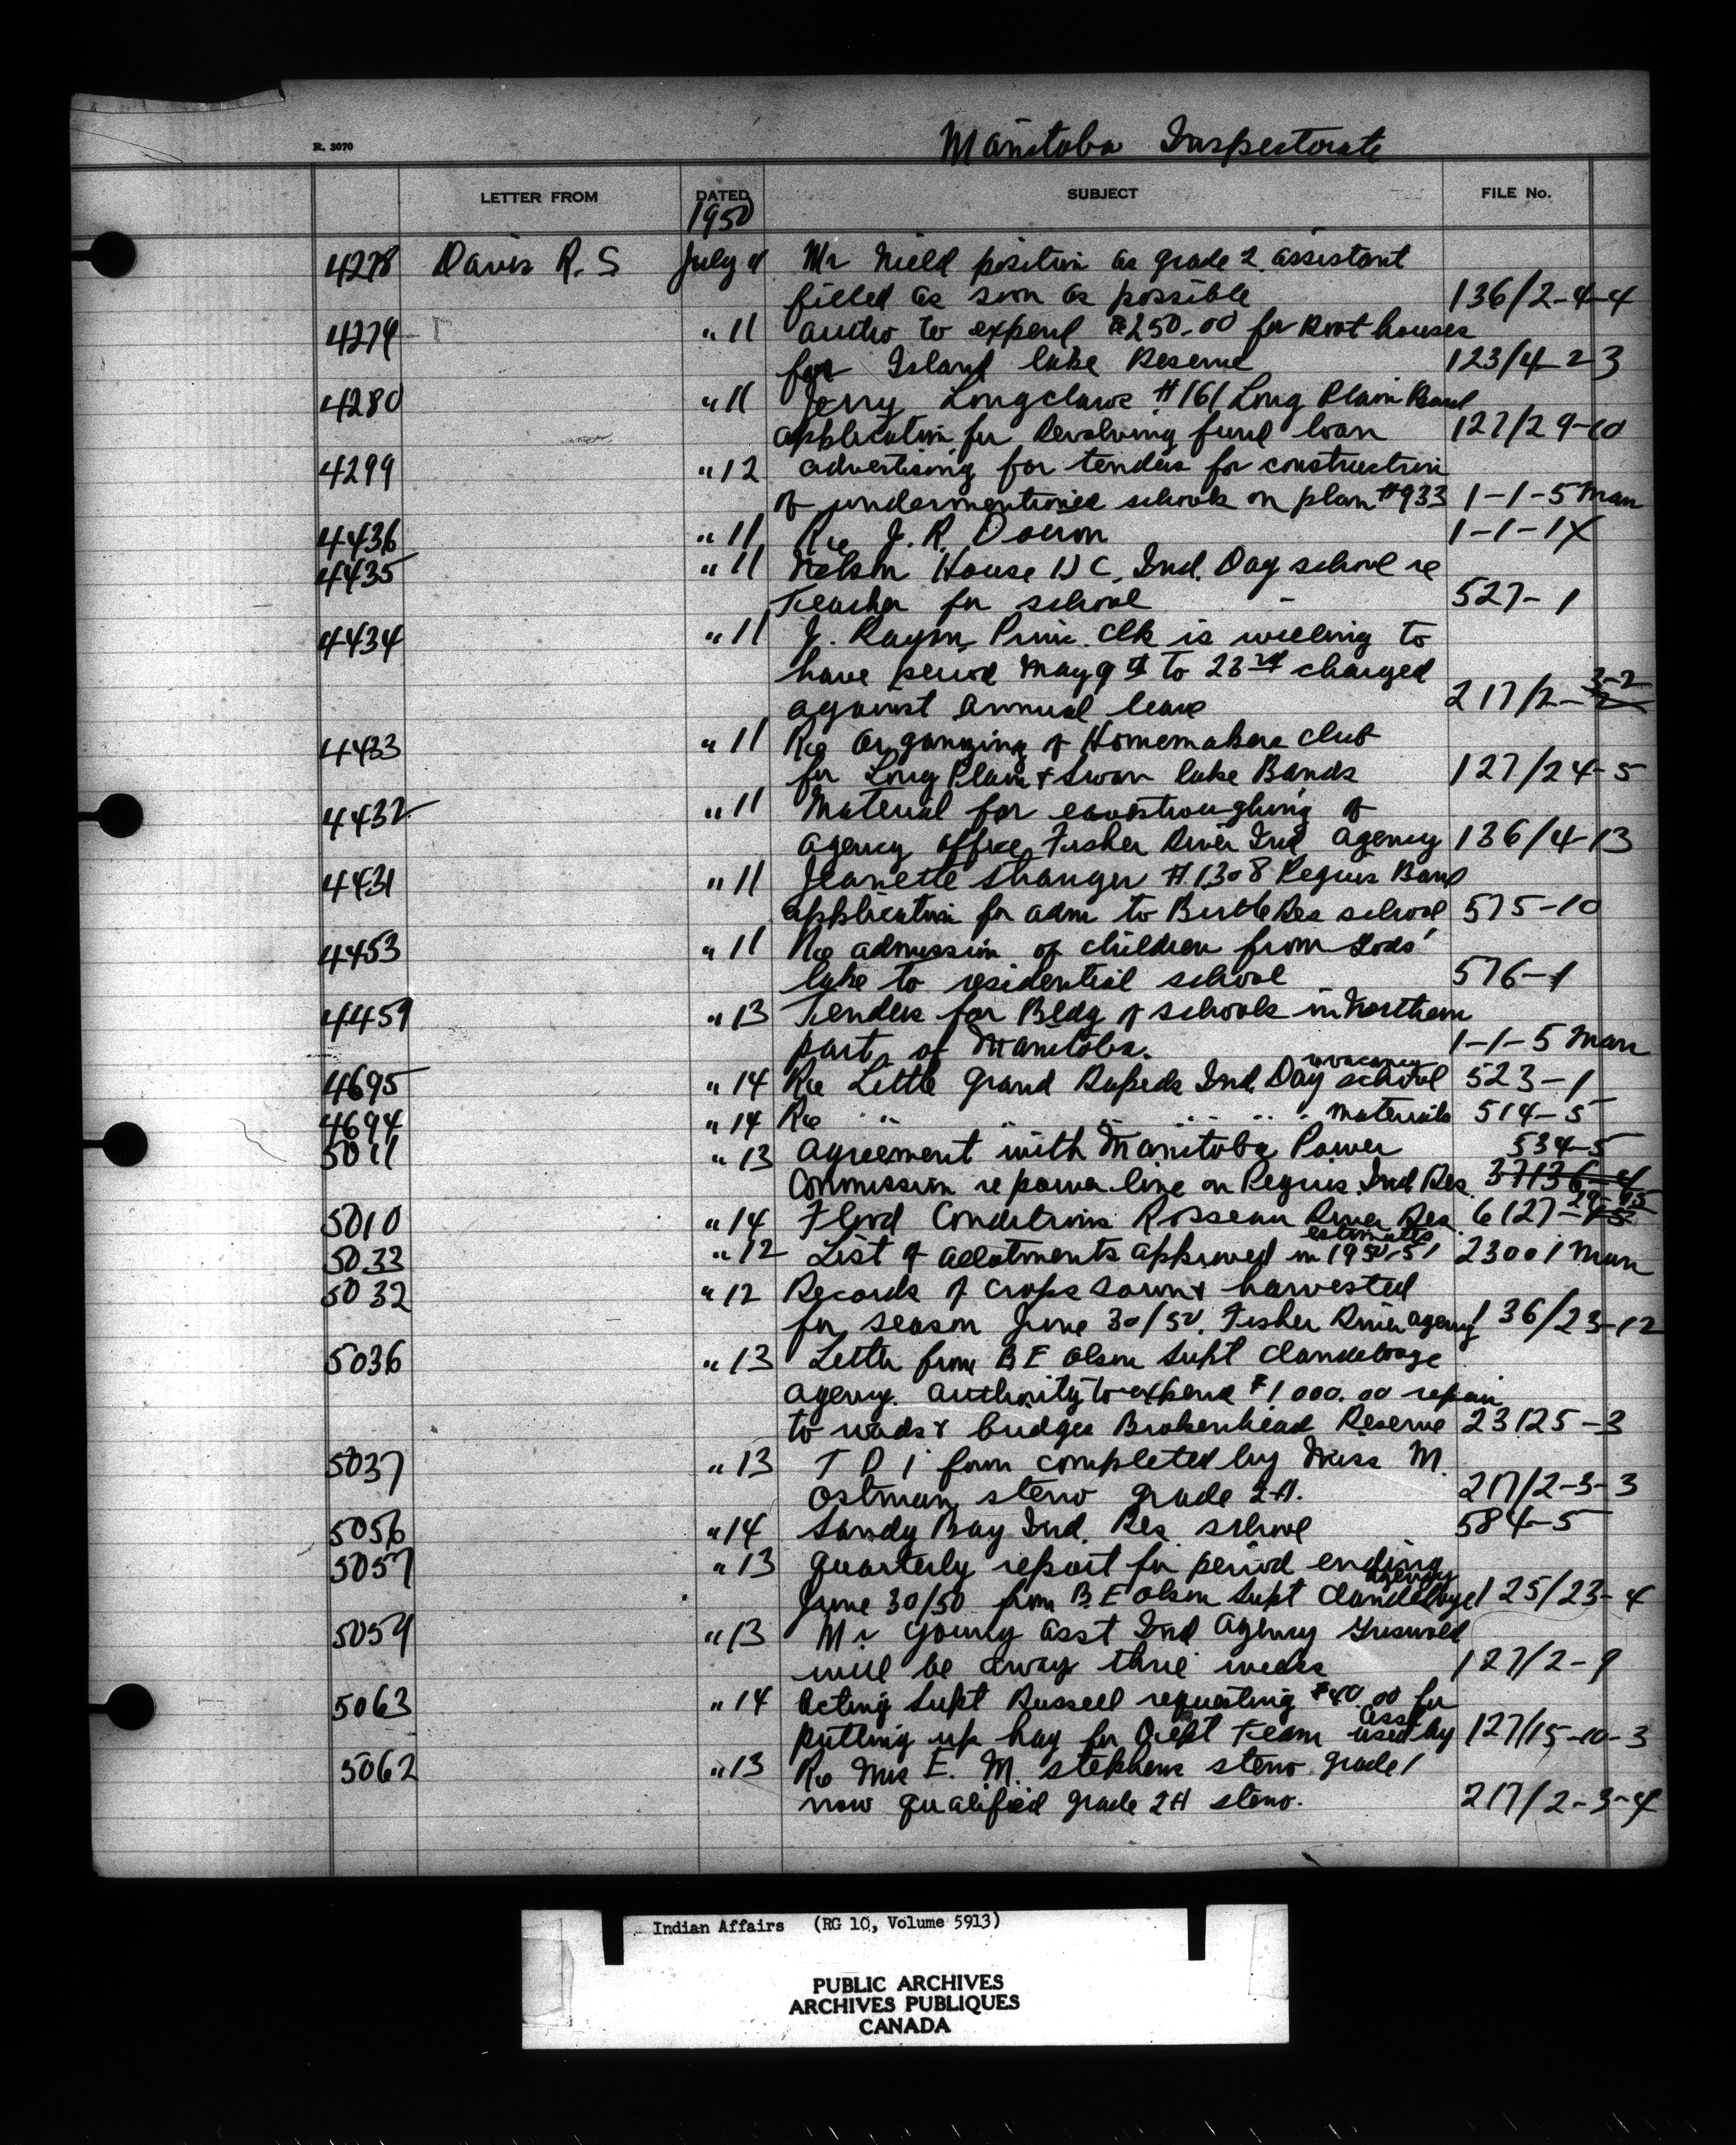 R. 3070
Manitoba Inspectorate
LETTER FROM DATED SUBJECT FILE No.
1950
4278 Davis R. S July 11 Mr Nield position as grade 2 assistant
filled as soon as possible 136/2-4-4
4279 " 11 autho to expend $250.00 for Root houses
for Island lake Reserve 123/4-23
4280 " 11 Jerry Longclaws #161 Long Plain Band
application for Revolving fund loan 127/29-10
4299 " 12 advertising for tenders for construction
of undermentioned schools on plan #933 1-1-5 Man
4436 " 11 Re J. R. 1-1-1X
4435 " 11 Nelson House Ind. Day school re
Teacher for school - 527-1
4434 " 11 J. Prin. Clk is willing to
have period May 9th to 23rd charged
against annual leave 217/2-3-2
4433 " 11 Re Organizing of Homemakers club
for Long Plain & Swan lake Bands 127/24-5
4432 " 11 Material for eavestroughing of
agency office Fisher River Ind agency 136/4-13
4431 " 11 Jeanette Stranger #1308 Peguis Band
application for adm to Birtle Res school 575-10
4453 " 11 Re admission of children from Gods'
lake to residential school 576-1
4459 " 13 Tenders for Bldg of schools in Northern
part of Manitoba. 1-1-5 Man
vacancy
4695 " 14 Re Little Grand Rapids Ind Day school 523-1
4694 " 14 Re " " " " " materials 514-5
5011 " 13 Agreement with Manitoba Power 534-5
Commission re power line on Peguis Ind Res. 37136-4
5010 " 14 Flood Conditions Rosseau River Res 6127-29-
estimates
5033 " 12 List of allotments approved in 1950-51 23001 Man
5032 " 12 Records of crops sown & harvested
for season June 30/50. Fisher River agency 136/23-12
5036 " 13 Letter from B E Olson Supt Clandeboye
Agency. Authority to expend $1000.00 repair
to roads & bridges Brokenhead Reserve 23125-3
5037 " 13 T D 1 form completed by Miss M.
Ostman, steno grade 2A. 217/2-3-3
5056 " 14 Sandy Bay Ind. Res. school 584-5
5057 " 13 Quarterly report for period ending
agency
June 30/50 from B.E Olson Supt Clandeboye 125/23-4
5059 " 13 Mr Young asst Ind Agency Griswold
will be away three weeks 127/2-9
5063 " 14 Acting Supt Russell requesting $40.00 for
asst
putting up hay for Dept team used by 127/15-10-3
5062 " 13 Re Mrs E. M. Stephens steno grade 1
now qualified grade 2A steno. 217/2-3-4
Indian Affairs (RG 10, Volume 5913)
PUBLIC ARCHIVES
ARCHIVES PUBLIQUES
CANADA